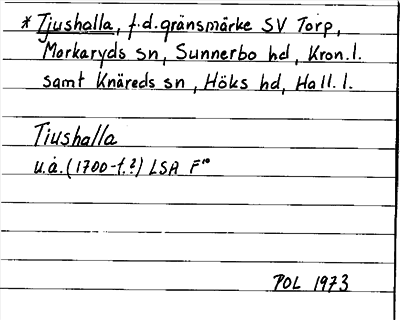 * Tjushalla, f.d. gränsmärke SV Torp,
Markaryds sn, Sunnerbo hd, Kron. l.
samt Knäreds sn, Höks hd, Hall. l.
Tiushalla
u.å. (1700-t.?) LSA F10
POL 1973